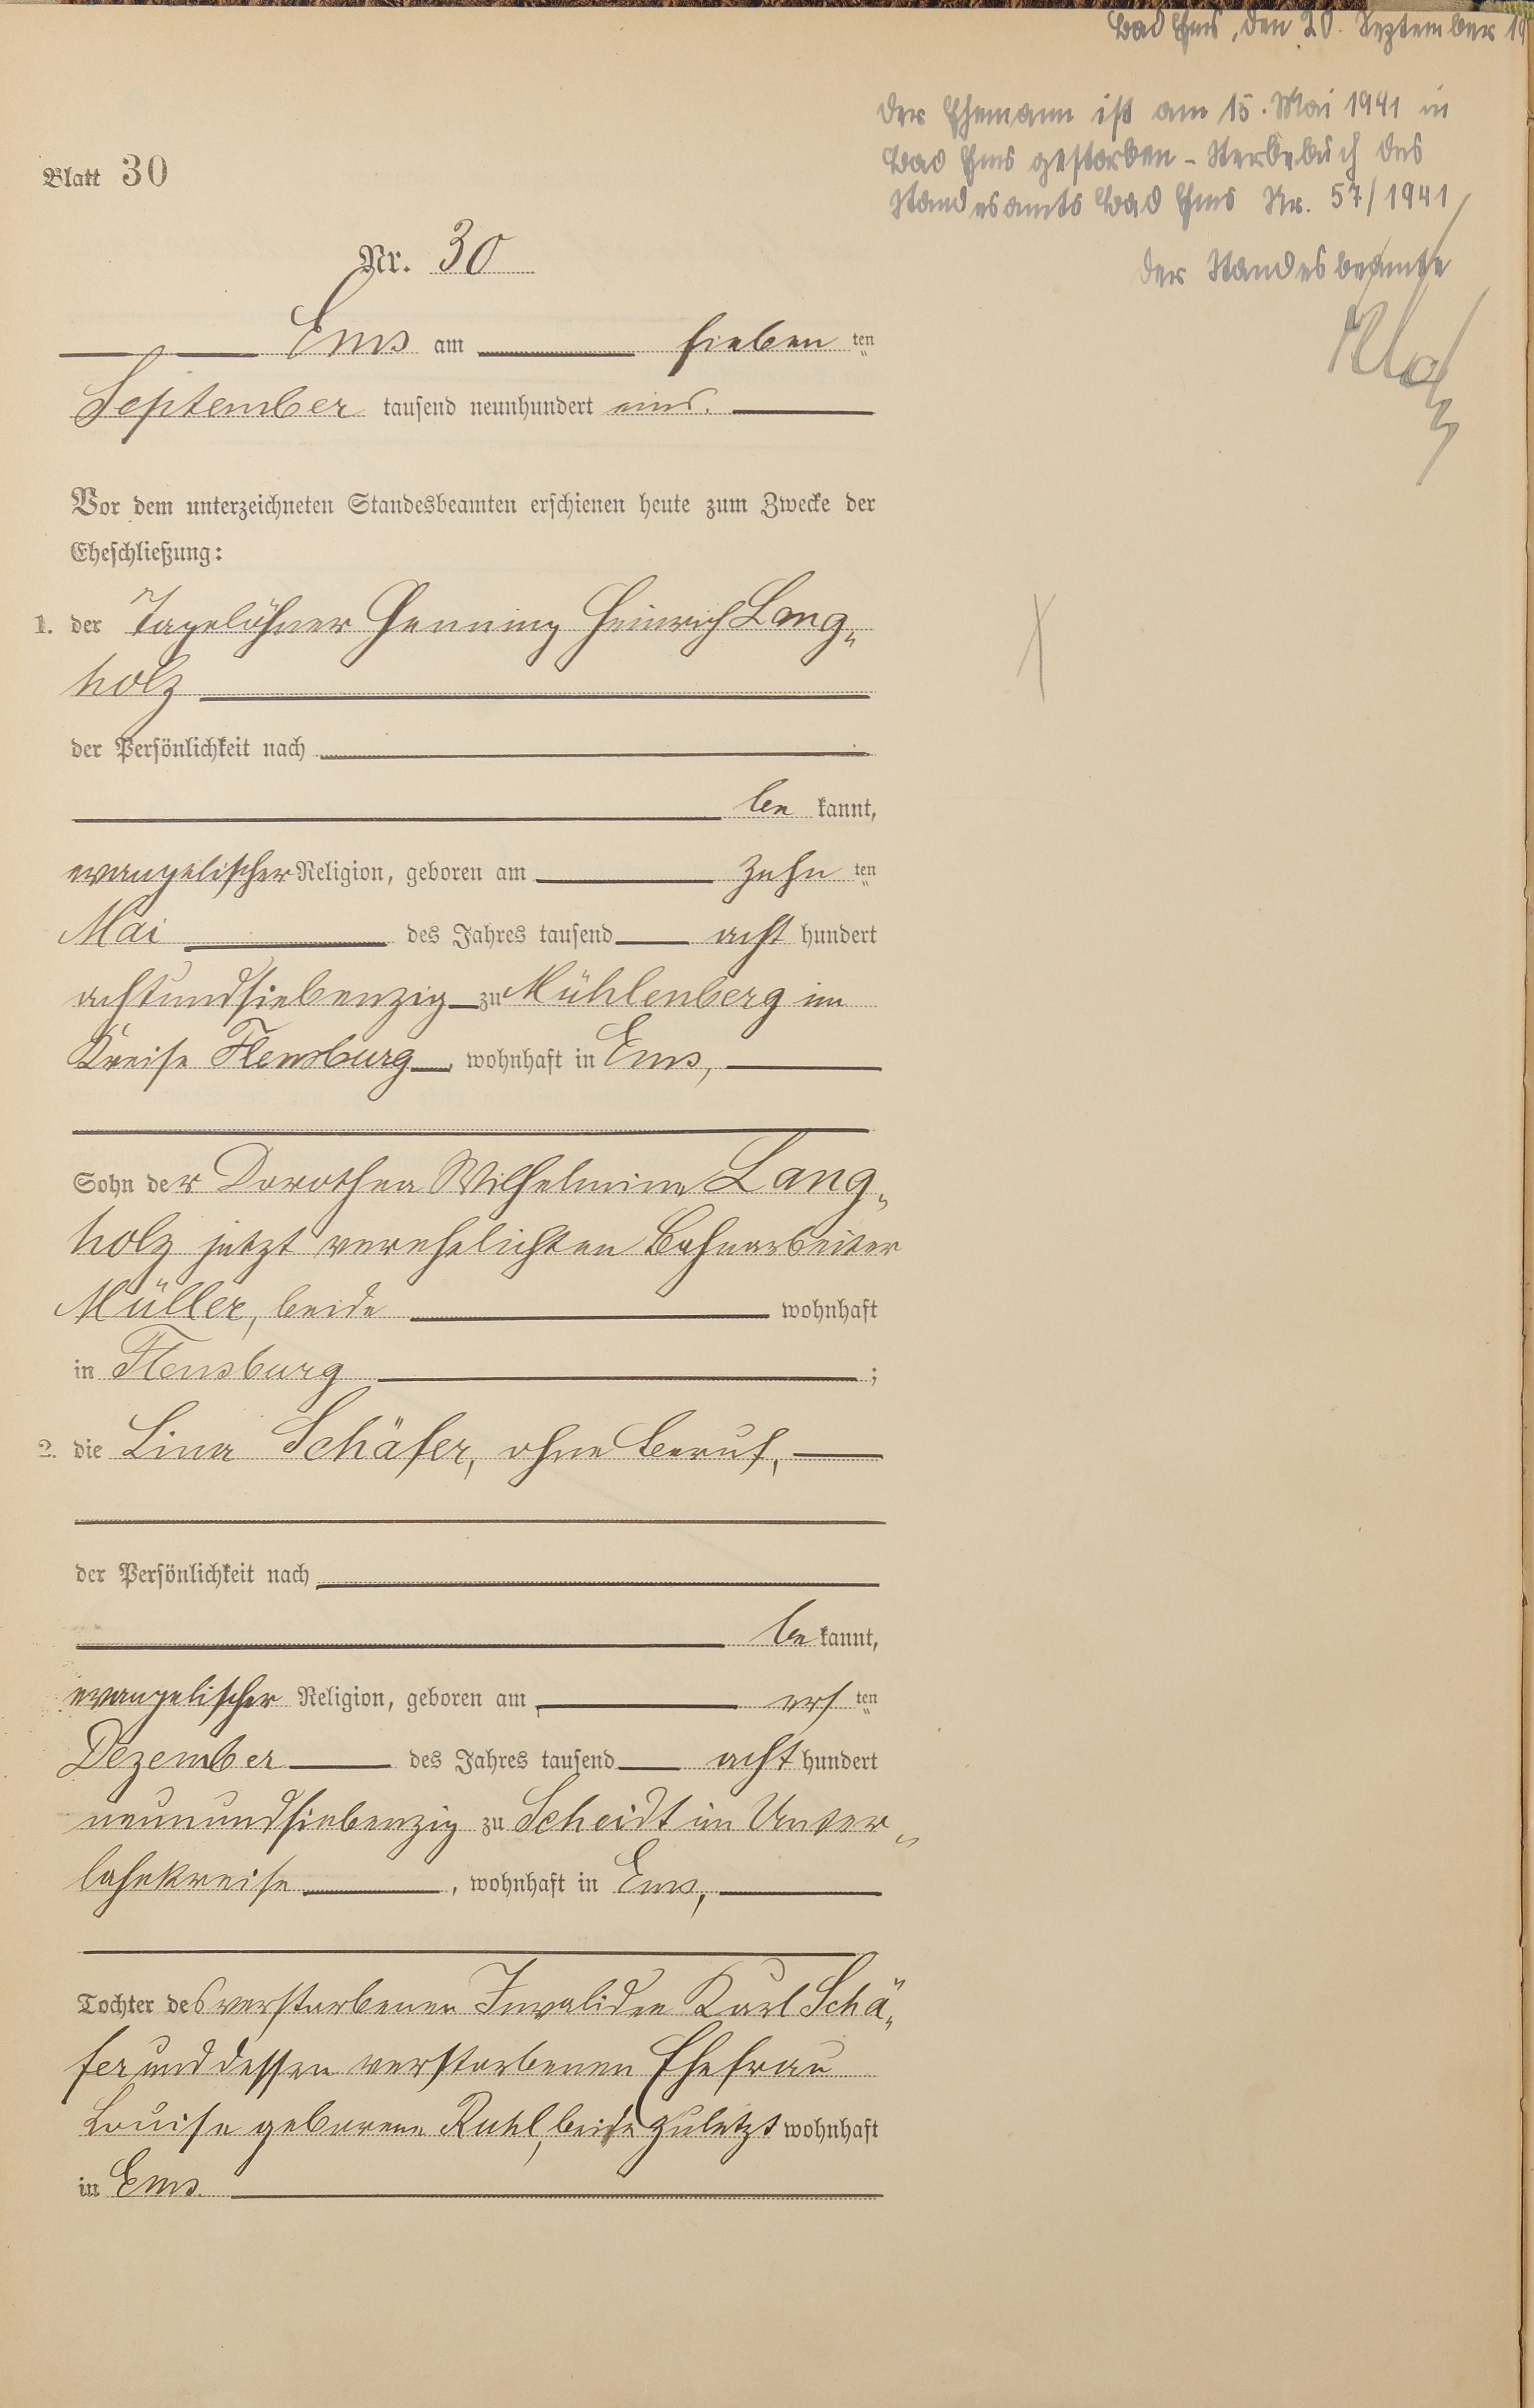 Bad Ems, den 20. September 19
Der Ehemann ist am 15. Mai 1941 in
Bad Ems gestorben - Sterbebuch des
Standesamts Bad Ems Nr. 57/1941
Der Standesbeamte
Blatt 30
Nr. 30
Ems am sieben ten
September tausend neunhundert eins.
Vor dem unterzeichneten Standesbeamten erschienen heute zum Zwecke der
Eheschließung:
1. der Tagelöhner Henning Heinrich Lang„
holz
der Persönlichkeit nach
be kannt,
evangelischer Religion, geboren am zehn ten
Mai des Jahres tausend acht hundert
achtundsiebenzig zu Mühlenberg im
Kreise Flensburg, wohnhaft in Ems,
Sohn der Dorothea Wilhelmine Lang„
holz jetzt verehelichten Bahnarbeiter
Müller, beide wohnhaft
in Flensburg ;
2. die Lina Schäfer, ohne Beruf,
der Persönlichkeit nach
be kannt,
evangelischer Religion, geboren am ers ten
Dezember des Jahres tausend acht hundert
neunundsiebenzig zu Scheidt im Unter„
lahnkreise, wohnhaft in Ems,
Tochter des verstorbenen Invaliden Karl Schä„
fer und dessen verstorbenen Ehefrau
Louise geborene Ruhl, beide zuletzt wohnhaft
in Ems.